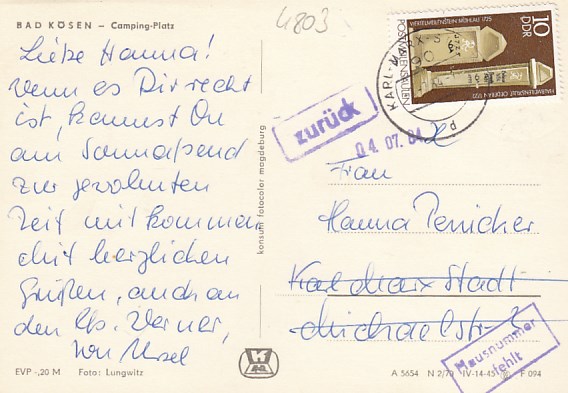 BAD KÖSEN — Camping-Platz
4803
Liebe Hanna!
wenn es Dir recht
ist, kannst Du
am Sonnabend
zur gewohnten
Zeit mitkommen
Mit herzlichen
Grüßen, auch an
den lb. Werner,
von Ursel
EVP -,20 M Foto: Lungwitz
konsum fotocolor magdeburg
10
DDR
POSTMEILENSÄULEN
KARL-MARX-S
zurück
04. 07. 84
Frau
Hanna
Karl Marx Stadt
Hausnummer
fehlt
A 5654 N 2/79 IV-14-45 F 094